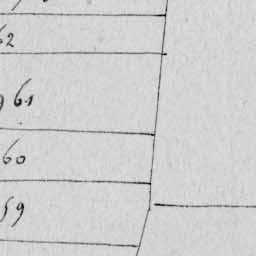 62
61
60
59